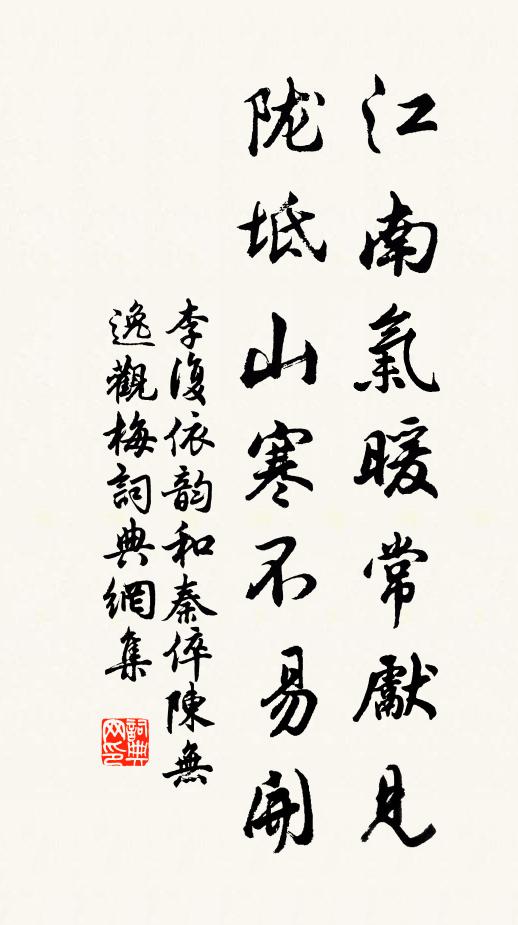 江南氣暖常獻見
陇坻山寒不易開
李復依韵和秦倅陳無
逸觀梅詞典網集
詞典网印